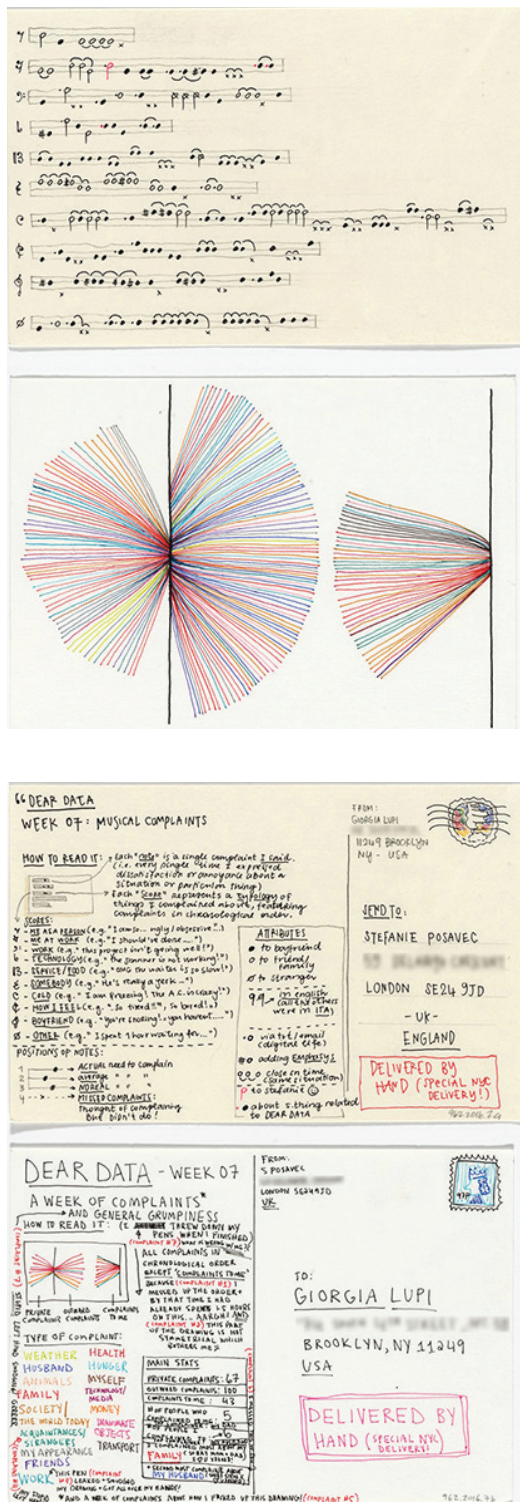 "DEAR DATA
WEEK 07: MUSICAL COMPLAINTS
HOW TO READ IT:
Each "note" is a single complaint I said
(i.e. every single time I expressed
dissatisfaction or annoyance about a
situation or particular thing)
Each "score" represents a typology of
things I complained about, featuring
complaints in chronological order.
SCORES:
ME AS A PERSON (e.g. "I am so... ugly/obsessive...")
ME AT WORK (e.g. "I should've done...")
WORK (e.g. "this project isn't going well!")
TECHNOLOGY (e.g. "the scanner is not working!")
SERVICE/FOOD (e.g. "the waiter is so slow!")
SOMEBODY (e.g. "He's really a jerk...")
COLD (e.g. "I am freezing! The A.C. is crazy!")
HOW I FEEL (e.g. "so tired!", "so bored!")
BOYFRIEND (e.g. "you're snoring!, you haven't...")
OTHER (e.g. "I spent 1 hour waiting for...")
POSITIONS OF NOTES:
1 ACTUAL need to complain
2 average " "
3 NOT REAL " "
4 MISSED COMPLAINTS:
thought of complaining
but didn't do!
ATTRIBUTES
to boyfriend
to friend/
family
to stranger
in english
(all the others
were in ITA)
via txt/email
(digital life)
adding EMPHASYS
close in time
(same situation)
to stefanie
about s.thing related
to DEAR DATA
FROM:
GIORGIA LUPI
11249 BROOKLYN
NY - USA
SEND TO:
STEFANIE POSAVEC
LONDON SE24 9JD
-UK-
ENGLAND
DELIVERED BY
HAND (SPECIAL NYC
DELIVERY!)
DEAR DATA - WEEK 07
A WEEK OF COMPLAINTS*
AND GENERAL GRUMPINESS
HOW TO READ IT: (I THREW DOWN MY
PENS WHEN I FINISHED)
PRIVATE COMPLAINTS
OUTWARD COMPLAINTS
COMPLAINTS TO ME
ALL COMPLAINTS IN
CHRONOLOGICAL ORDER
EXCEPT "COMPLAINTS TO ME"
BECAUSE (COMPLAINT #1) I
MESSED UP THE ORDER &
BY THAT TIME I HAD
ALREADY SPENT 1.5 HOURS
ON THIS... AARGH! AND
(COMPLAINT #2) THIS PART
OF THE DRAWING IS NOT
SYMMETRICAL WHICH
BOTHERS ME
TYPE OF COMPLAINT:
WEATHER
HUSBAND
ANIMALS
FAMILY
SOCIETY/
THE WORLD TODAY
ACQUAINTANCES/
STRANGERS
MY APPEARANCE
FRIENDS
WORK
HEALTH
HUNGER
MYSELF
TECHNOLOGY/
MEDIA
MONEY
INANIMATE
OBJECTS
TRANSPORT
MAIN STATS
PRIVATE COMPLAINTS: 67
OUTWARD COMPLAINTS: 100
COMPLAINTS TO ME: 43
# OF PEOPLE WHO
COMPLAINED TO ME: 5
I COMPLAINED MOST ABOUT MY
FAMILY
SECOND MOST COMPLAINED ABOUT
MY HUSBAND
*AND A WEEK OF COMPLAINTS ABOUT HOW I FUCKED UP THIS DRAWING! (COMPLAINT #5)
FROM:
S POSAVEC
LONDON SE24 9JD
UK
97P
TO:
GIORGIA LUPI
BROOKLYN, NY 11249
USA
DELIVERED BY
HAND (SPECIAL NYC
DELIVERY!)